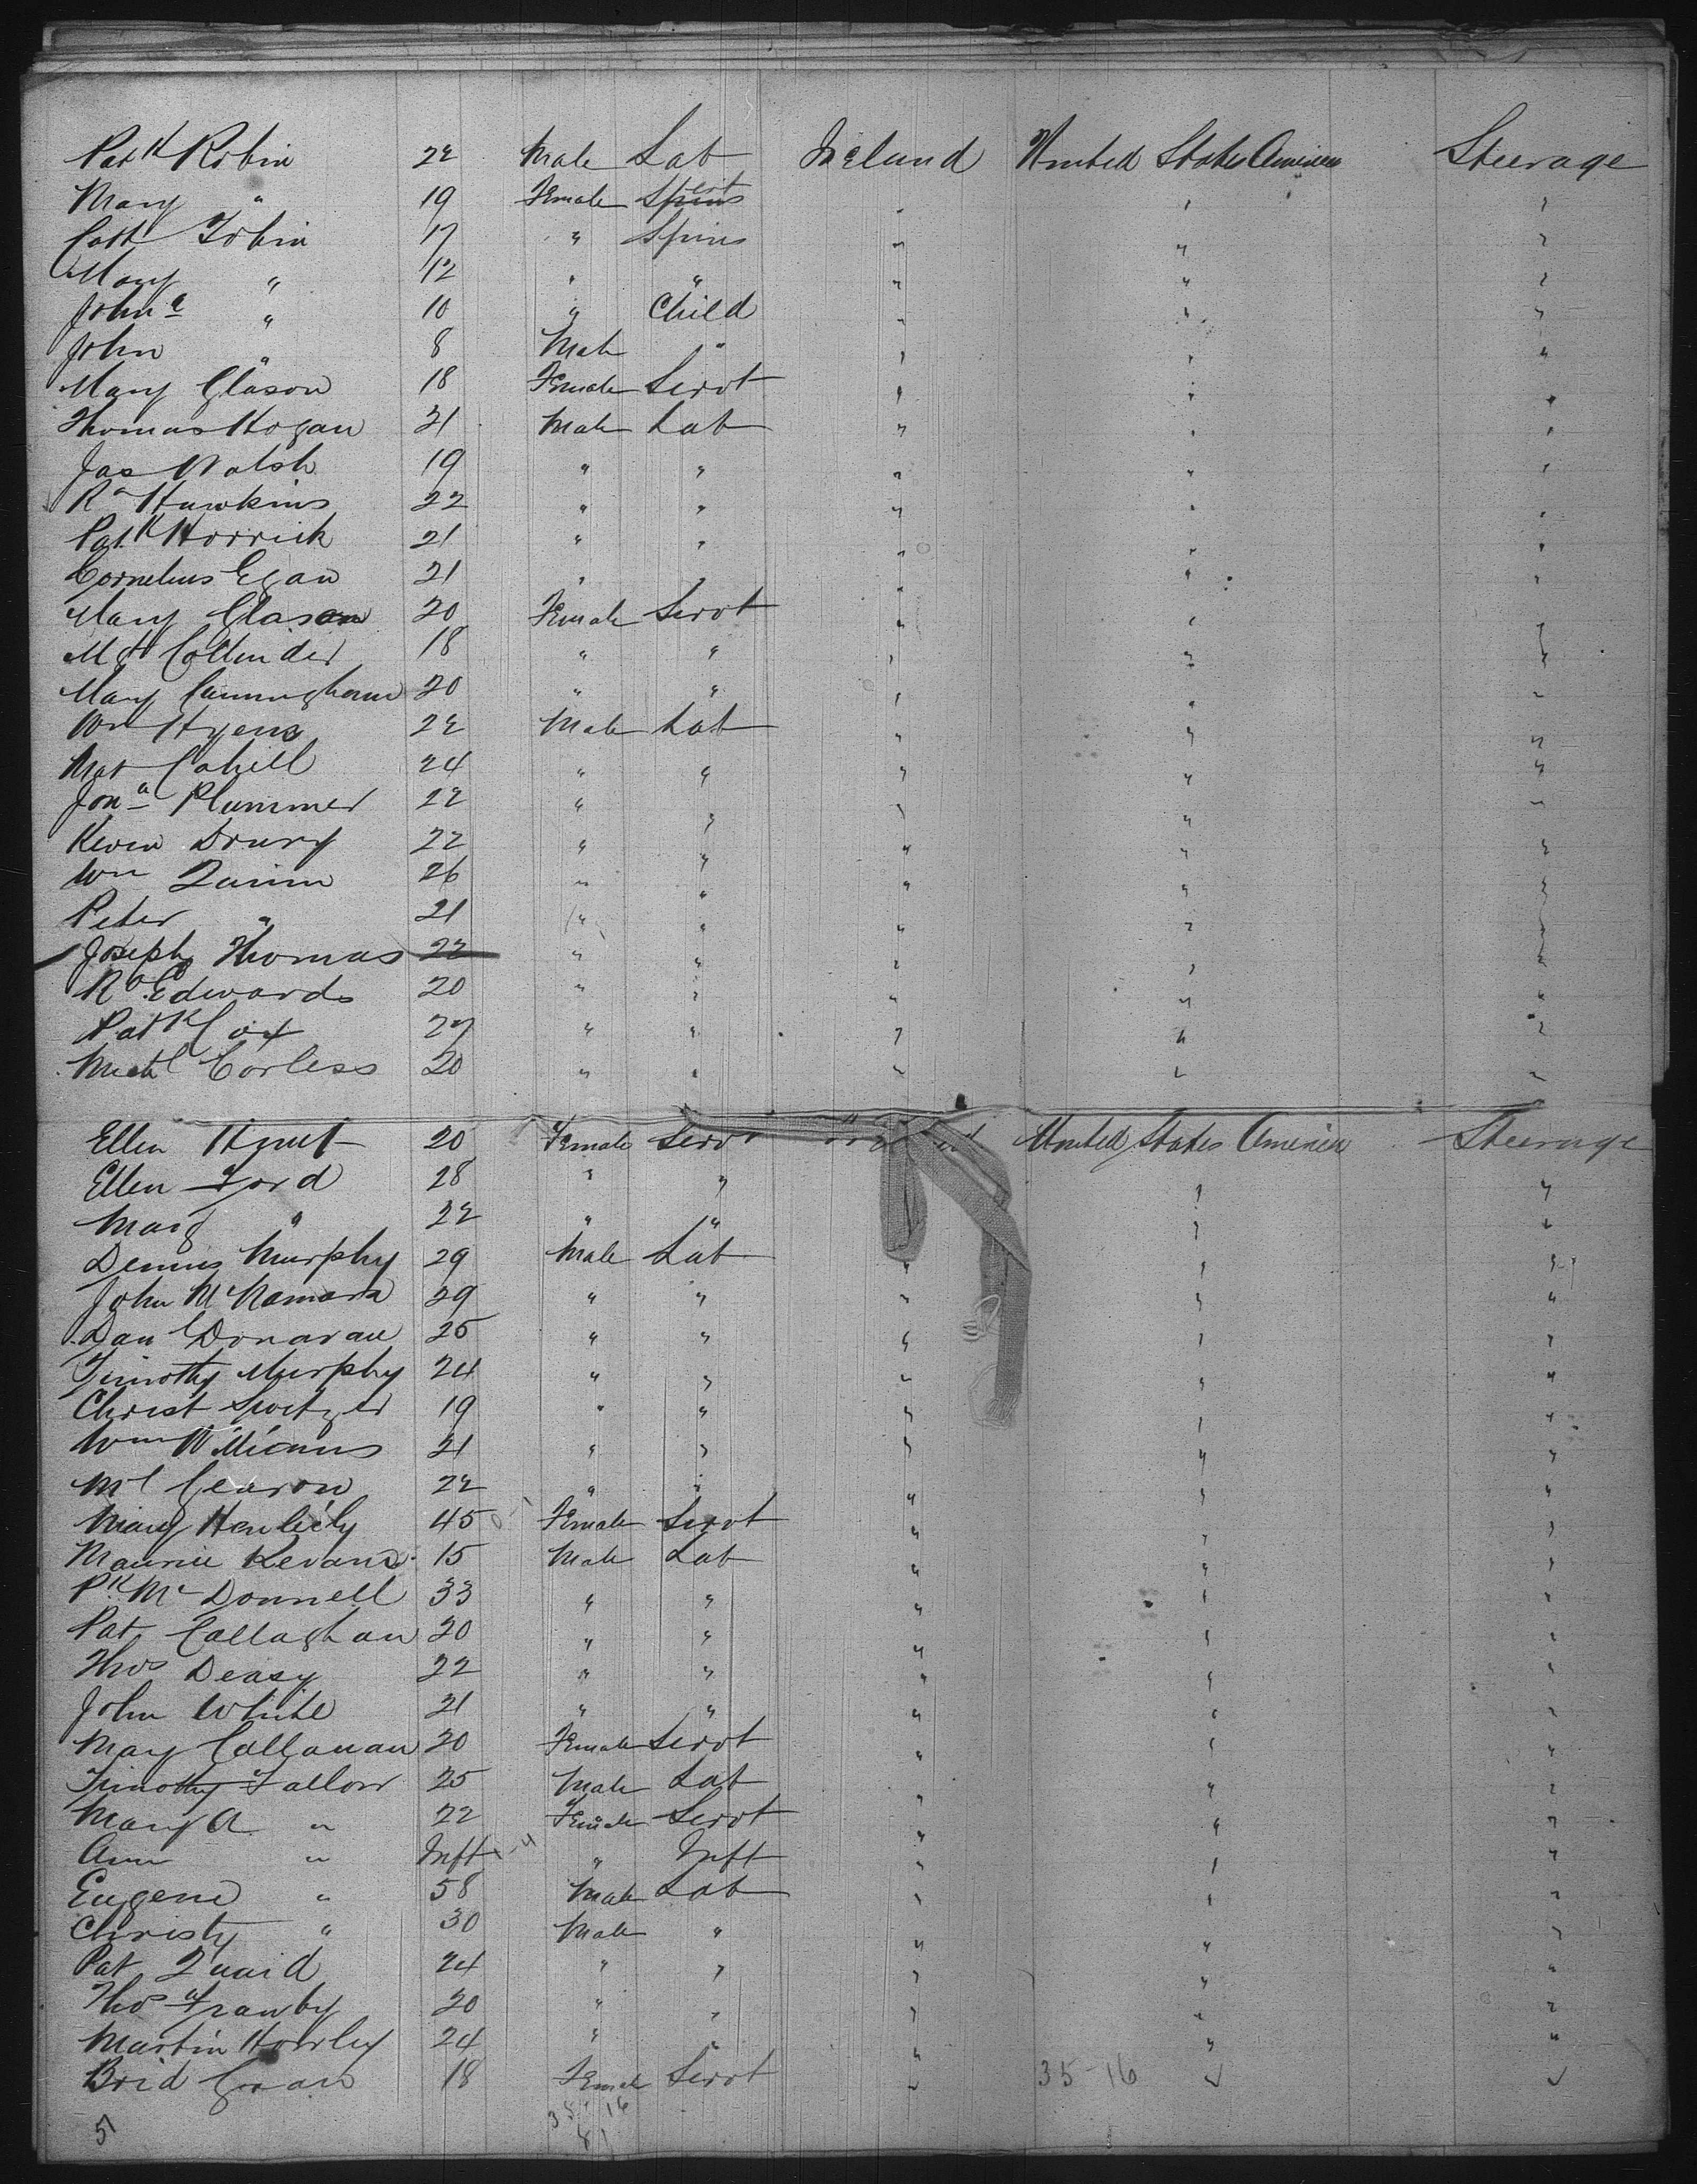 Patk Robin 22 Male Lab Ireland United States America Steerage
Mary " 19 Female " " "
Cath Tobin 17 " Spins " " "
Mary " 12 " " " " "
Johna " 10 " Child " " "
John " 8 Male " " " "
Mary Glason 18 Female Servt " " "
Thomas Hogan 21 Male Lab " " "
Jas Walsh 19 " " " " "
Rd Hawkins 22 " " " " "
Patk Horrick 21 " " " " "
Cornelius Egan 21 " " " " "
Mary Glason 20 Female Servt " " "
Mgt 18 " " " " "
Mary Cunningham 20 " " " " "
Wm 22 Male Lab " " "
Mat Cahill 24 " " " " "
Jona Plummer 22 " " " " "
Kevin Drury 22 " " " " "
Wm Quinn 26 " " " " "
Peter " 21 " " " " "
Joseph Thomas 22 " " " " "
Ro Edwards 20 " " " " "
Patk Cox 27 " " " " "
Michl Corless 20 " " " " "
Ellen 20 Female Servt United States America Steerage
Ellen Ford 28 " " " "
Marg " 22 " " " "
Dennis Murphy 29 Male Lab " " "
John McNamara 29 " " " " "
Dan Donavan 25 " " " " "
Timothy Murphy 24 " " " " "
Christ 19 " " " " "
Wm Williams 21 " " " " "
Ml Gearon 22 " " " " "
Mary 45 Female Servt " " "
Maurice Kevane 15 Male Lab " " "
Pk McDonnell 33 " " " " "
Pat Callaghan 20 " " " " "
Thos Deasy 22 " " " " "
John White 21 " " " " "
May Callanan 20 Female Servt " " "
Timothy Fallon 25 Male Lab " " "
Mary A " 22 Female Servt " " "
Ann " Inft " Inft " " "
Eugene " 58 Male Lab " " "
Christy " 30 Male " " " "
Pat Quaid 24 " " " " "
Thos 20 " " " " "
Martin Howley 24 " " " " "
Brid 18 Female Servt " 35-16 " "
51 35 16